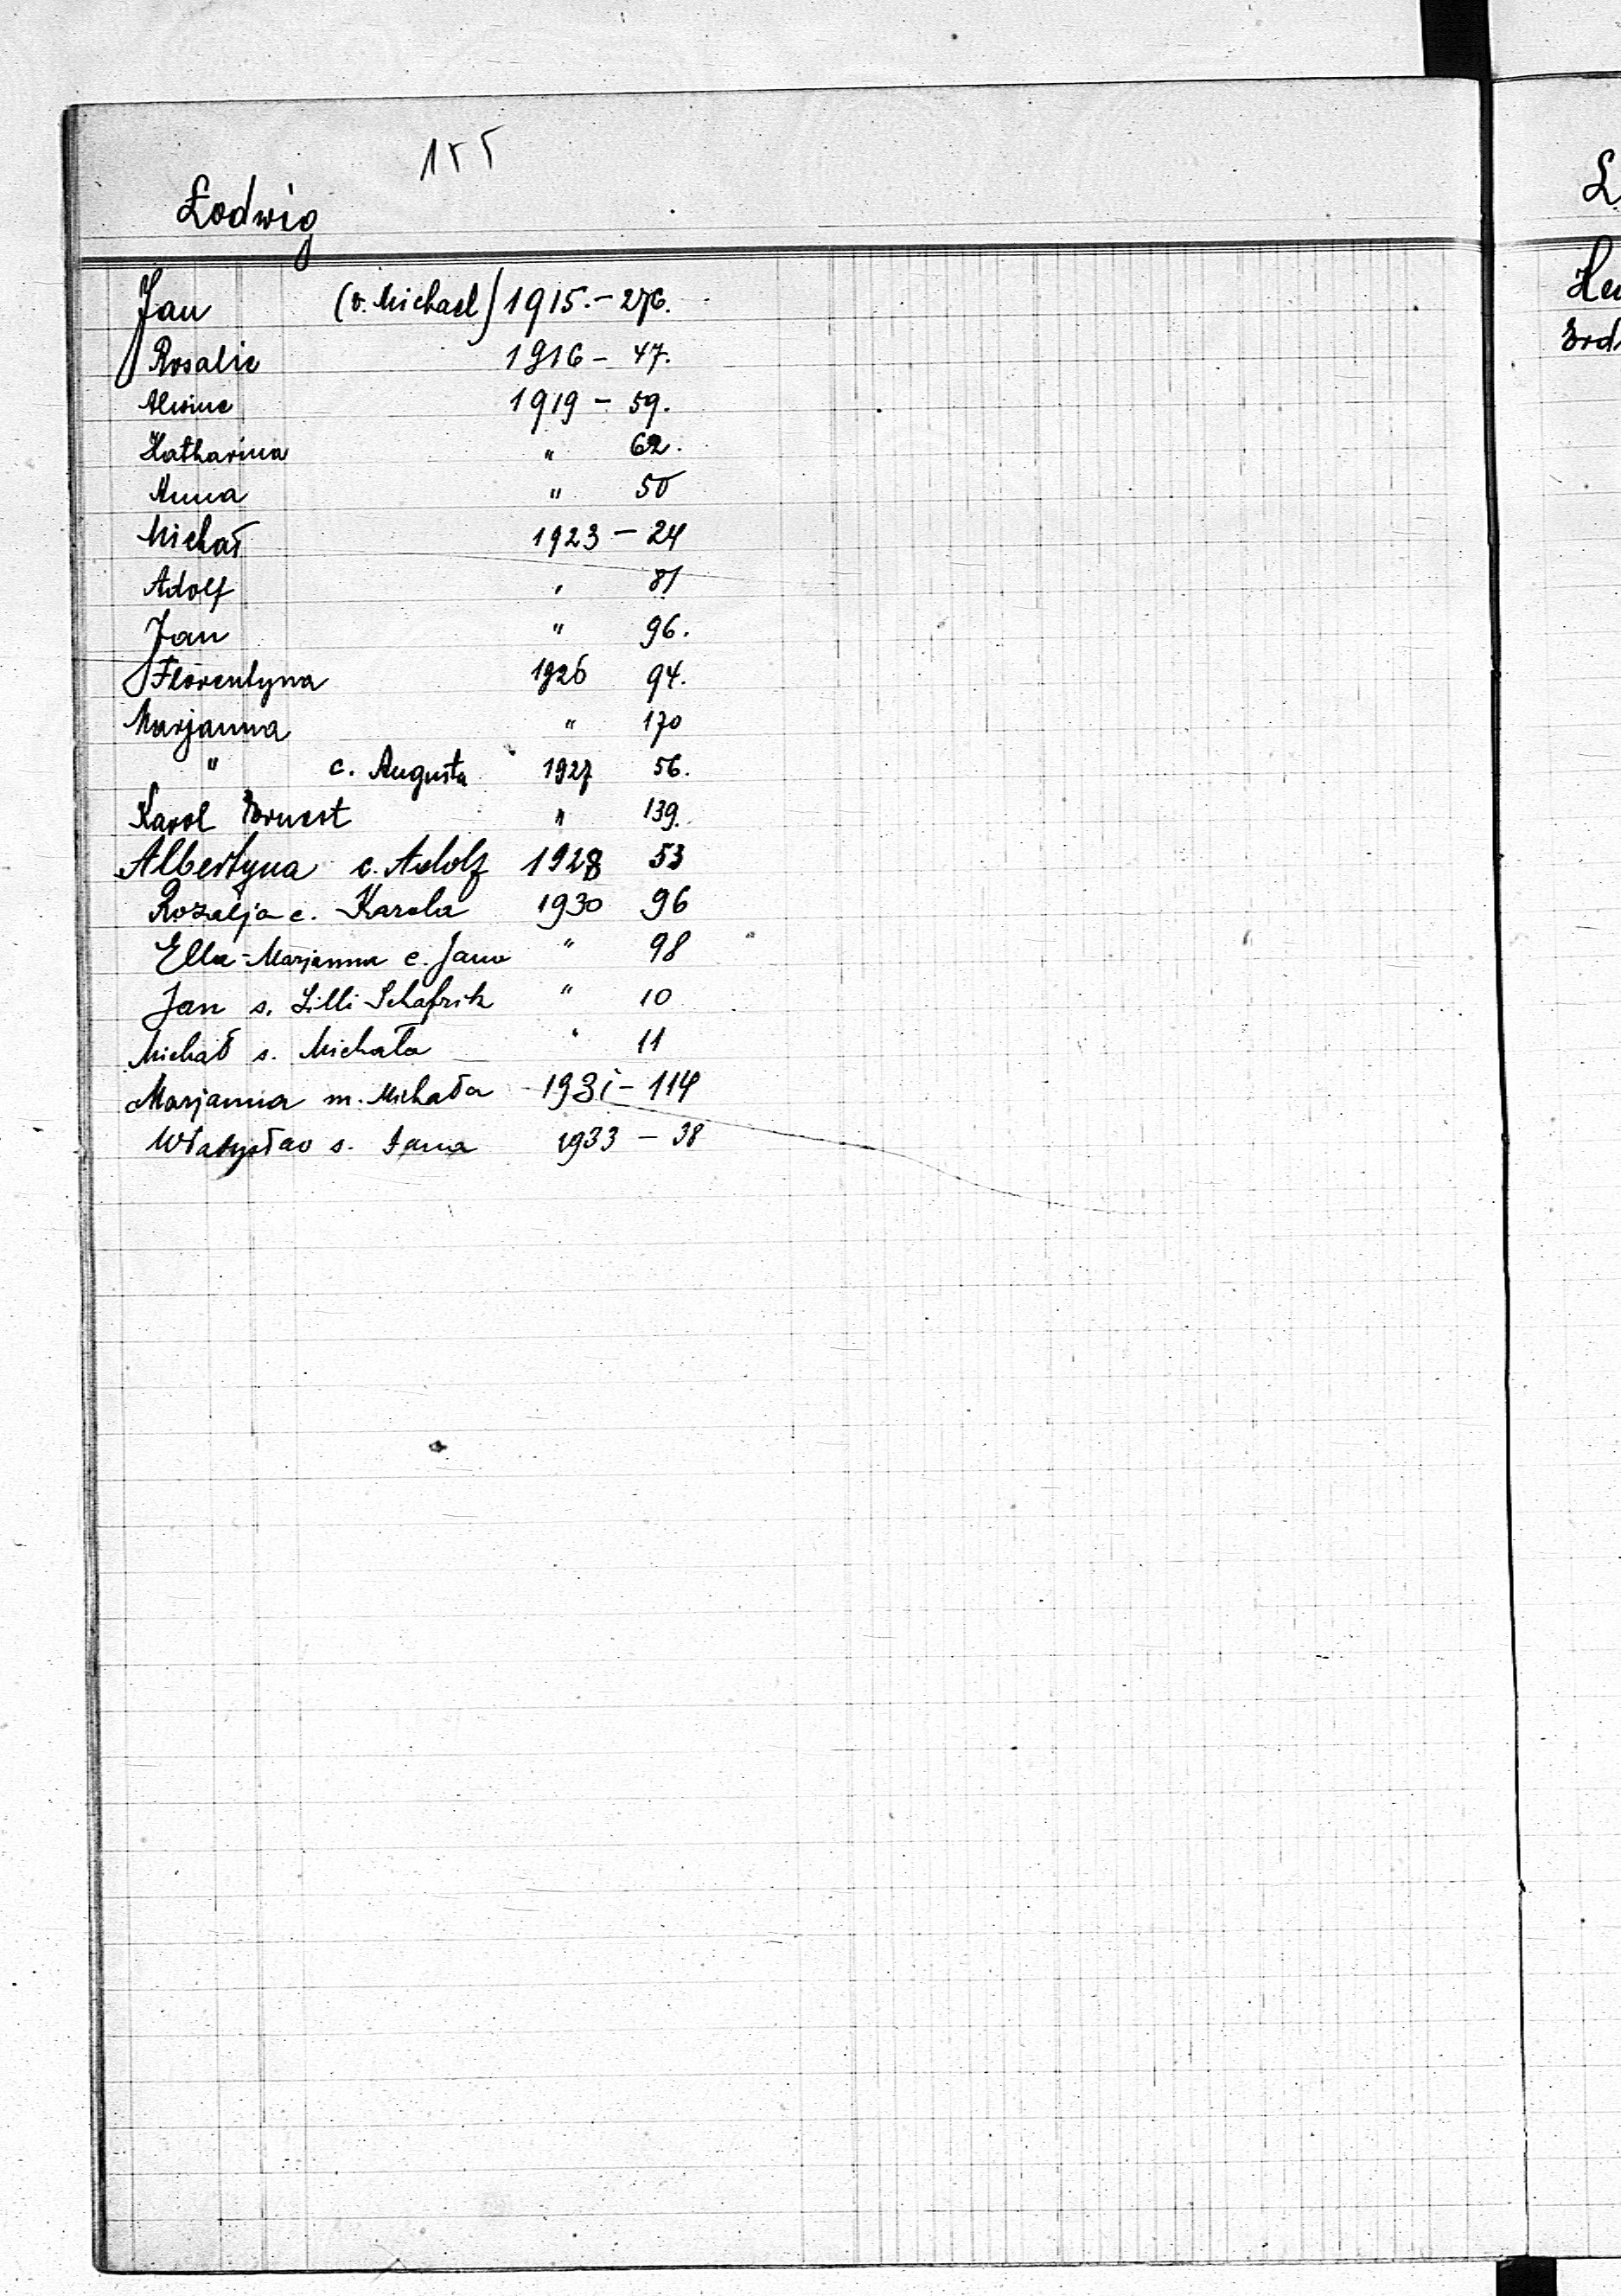 155
Łodwig
Jan (v. Michael) 1915.- 276.
Rosalie 1916 - 47.
Alwine 1919 - 59.
Katharina " 62.
Anna " 50
Michał 1923 - 24
Adolf " 81
Jan " 96.
Florentyna 1926 94.
Marjanna " 170
" c. Augusta 1927 56.
Karol Ernest " 139.
Albertyna c. Adolf 1928 53
Rozalja c. Karola 1930 96
Ella-Marjanna c. Jana " 98
Jan s. Lilli Schafrik " 10
Michał s. Michała " 11
Marjanna m. Michała 1931 - 114
Władysław s. Jana 1933 - 38